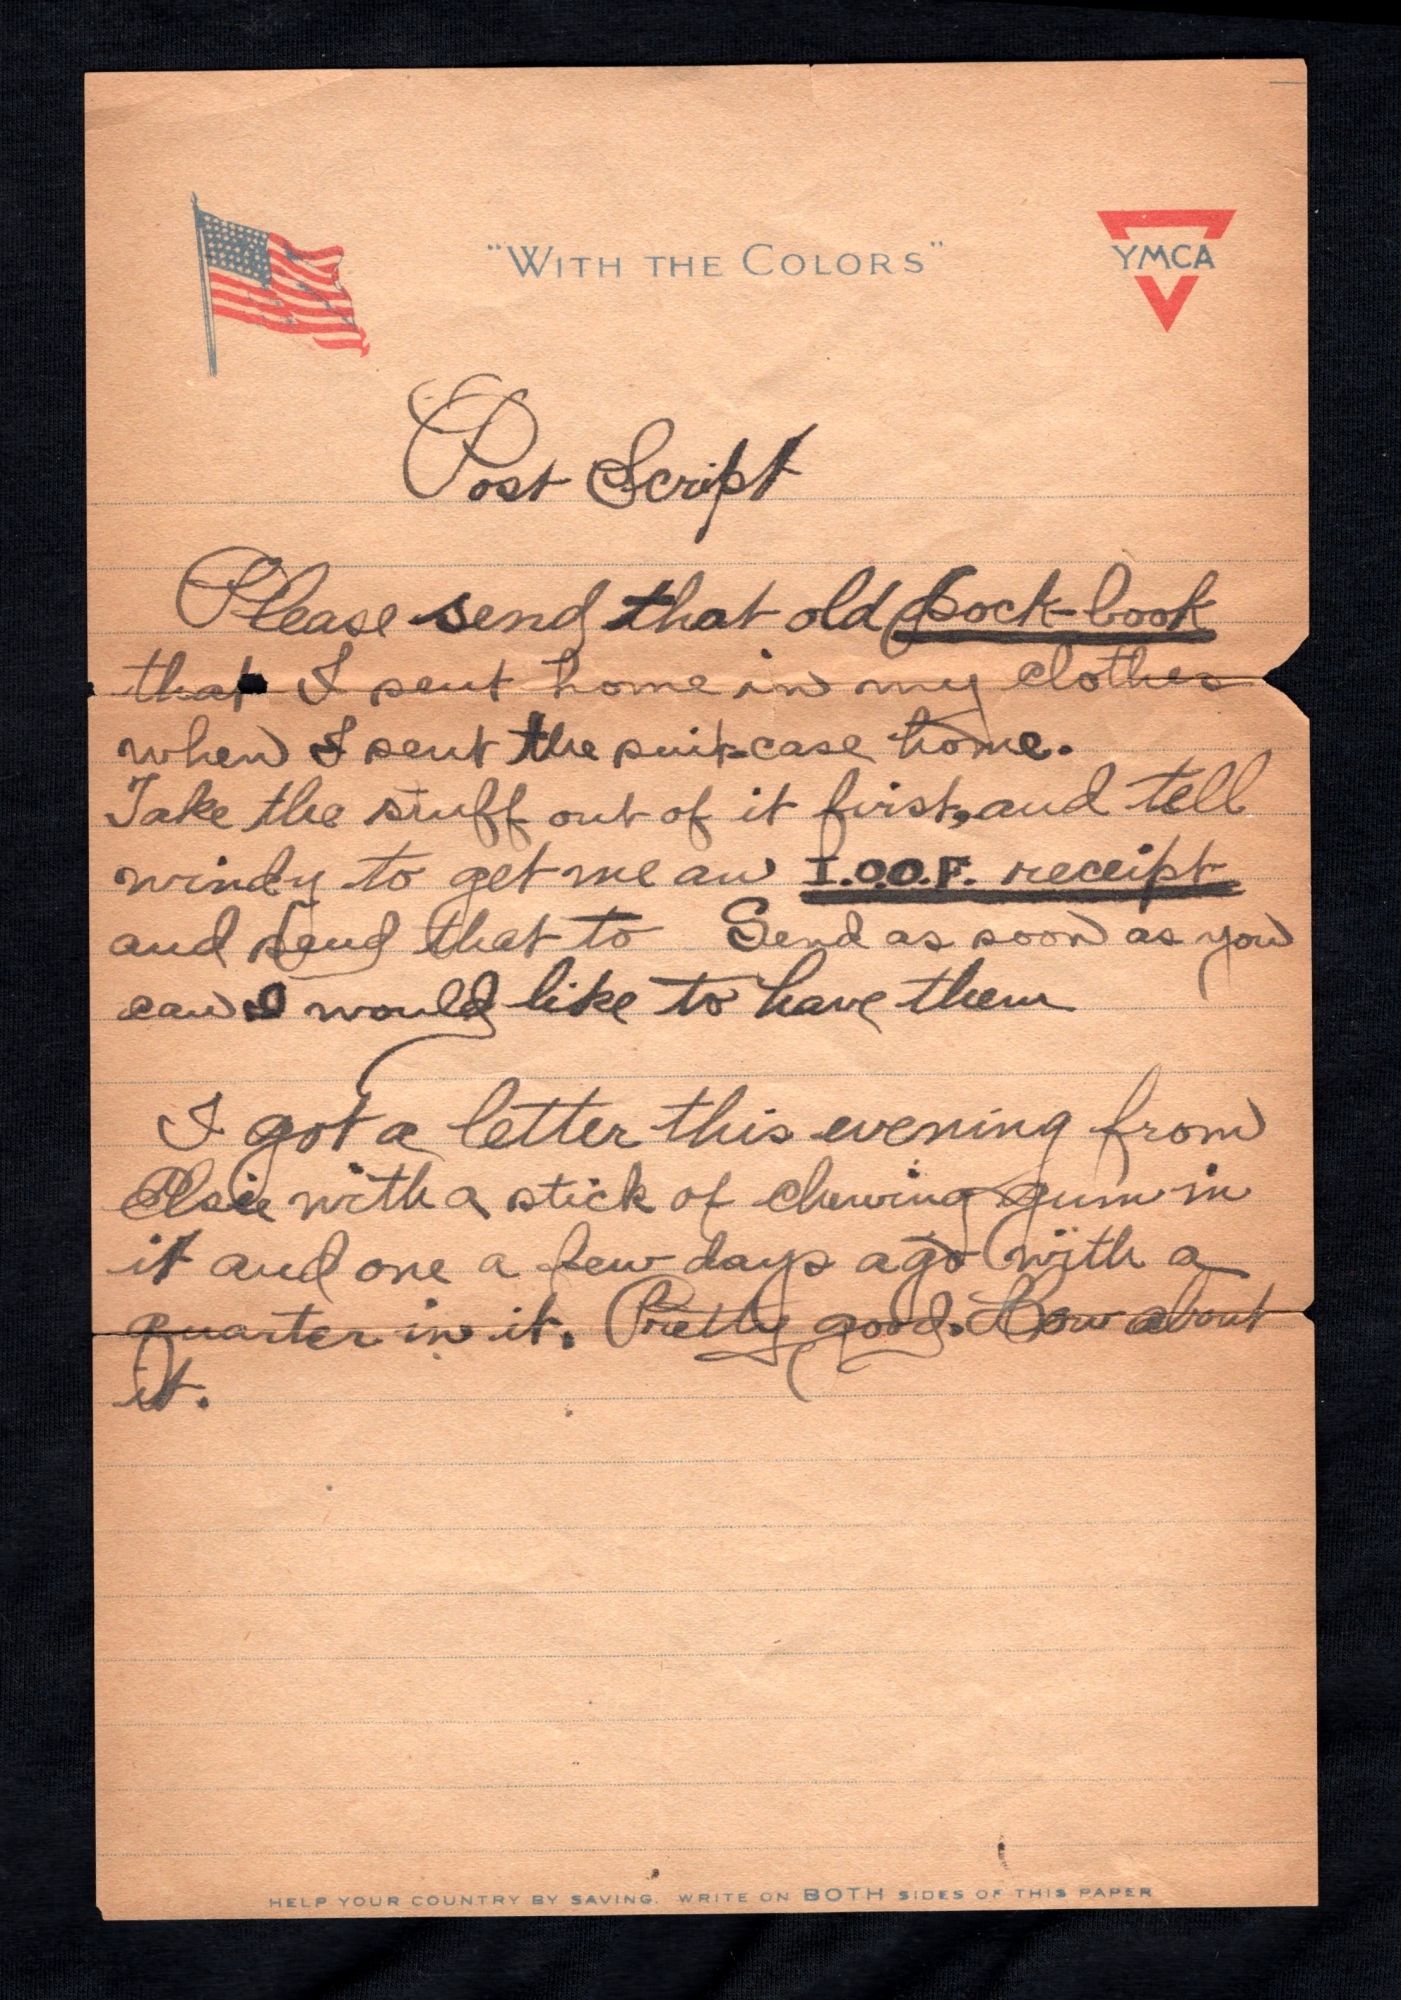 "WITH THE COLORS"
YMCA
Post Script
Please send that old pock-book
that I sent home in my clothes
when I sent the suit-case home.
Take the stuff out of it first, and tell
windy to get me an I.O.O.F. receipt
and send that to Send as soon as you
can I would like to have them
I got a letter this evening from
Elsie with a stick of chewing gum in
it and one a few days ago with a
quarter in it. Pretty good. How about
it.
HELP YOUR COUNTRY BY SAVING. WRITE ON BOTH SIDES OF THIS PAPER